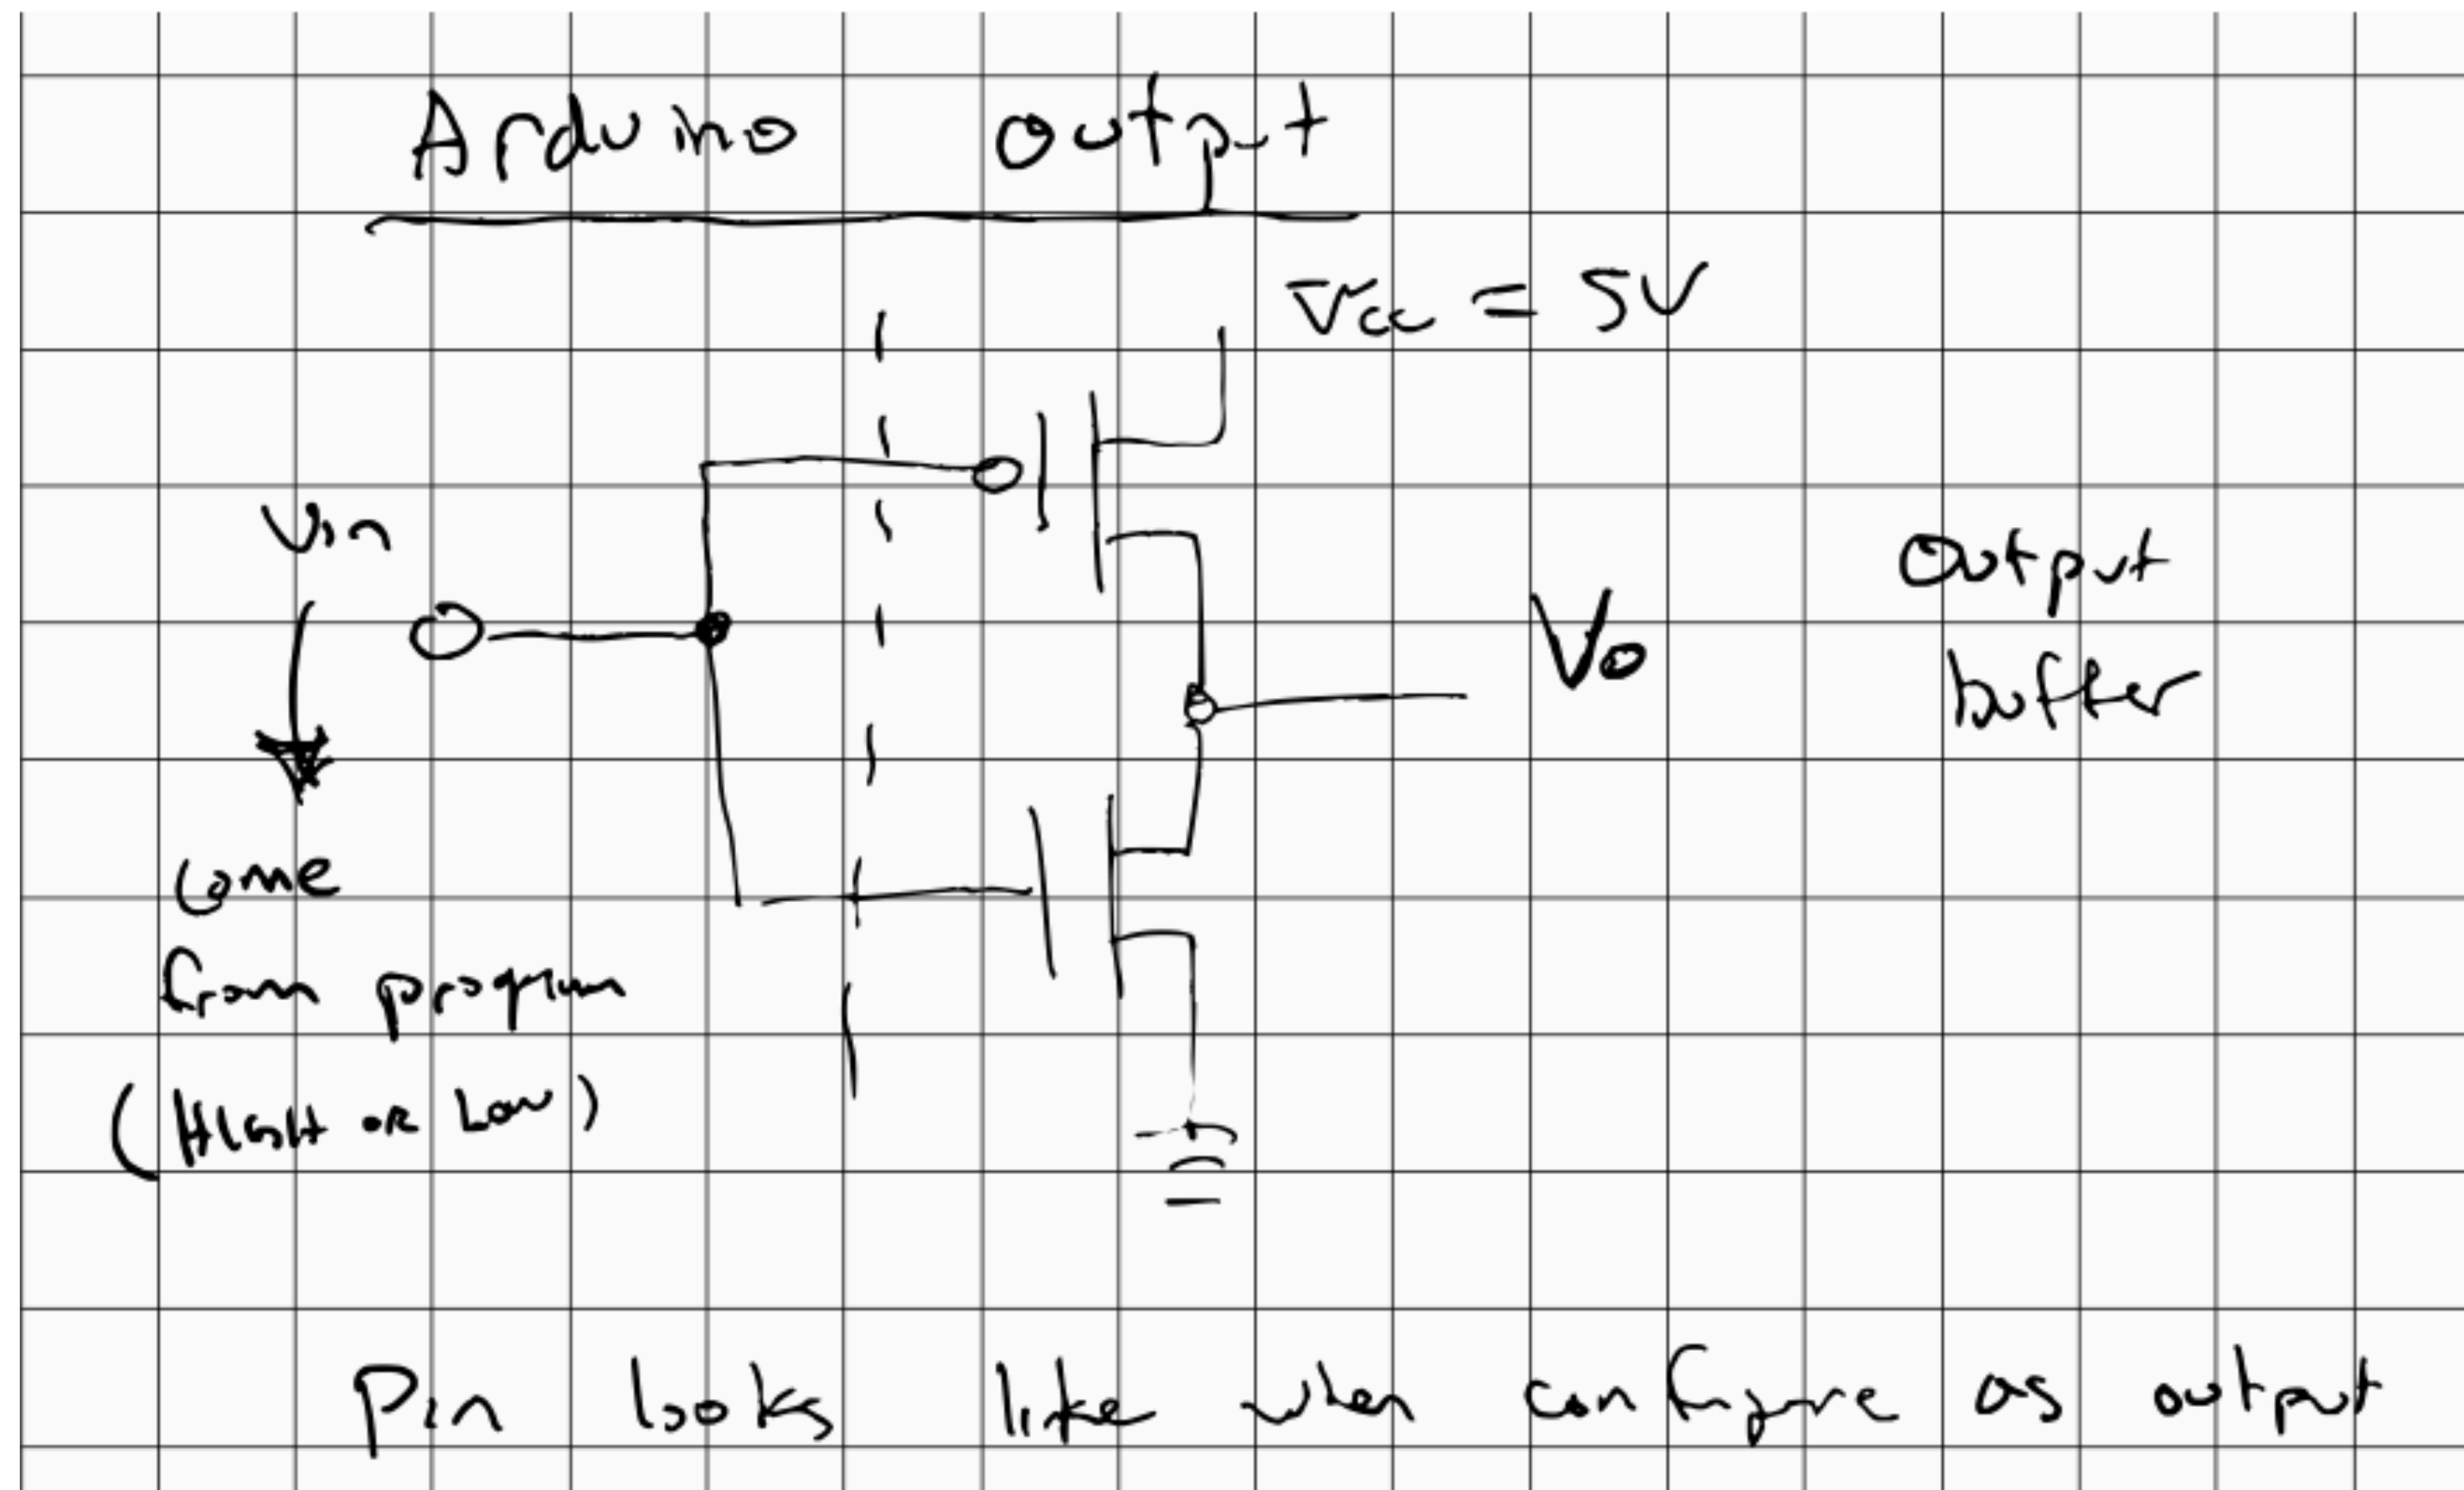 Arduino output
Vcc = 5V
Vin
Output
buffer
Vo
Come
from program
(HIGH OR Low)
Pin looks like when configure as output